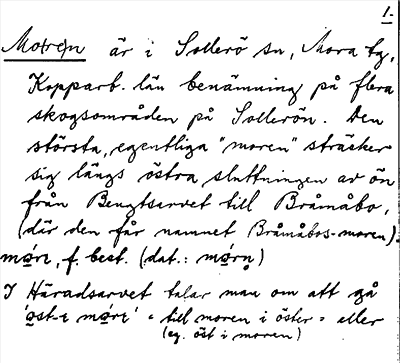 1.
Mo(r)n är i Sollerö sn, Mora tg,
Kopparb. län benämning på flera
skogsområden på Sollerön. Den
största, egentliga "moren" sträcker
sig längs östra sluttningen av ön
från Bengtsarvet till Bråmåbo,
(där den får namnet Bråmåbos-moren).
mǫ́rɩ, f. best. (dat.: mǫ́rn̥)
I Häradsarvet talar man om att gå
'ǫ̀st-ɩ mǫ́rɩ' = till moren i öster = eller
(eg. öst i moren)